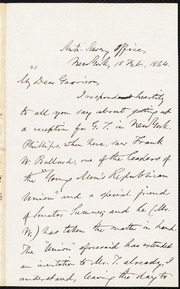 Anti-Slavery Office,
New York, 18 Feb., 1864.
My Dear Garrison,
I respond heartily
to all you say about getting up
a reception for G. T. in New York.
Phillips, when here, saw Frank
W. Ballard, one of the leaders of
the "Young Men's Republican
Union" and a special friend
of Senator Sumner, and he (Mr.
B.) has taken the matter in hand.
The "Union" aforesaid has extended
an invitation to Mr. T. already, I
understand, leaving the day to